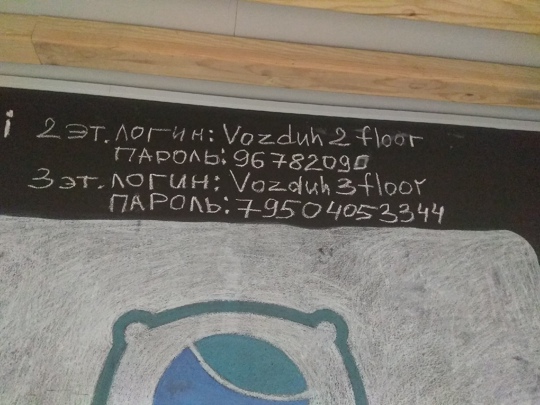 i 2 эт. ЛОГИН: Vozduh 2 floor
ПАРОЛЬ: 96782090
3 эт. ЛОГИН: Vozduh 3 floor
ПАРОЛЬ: 79504053344